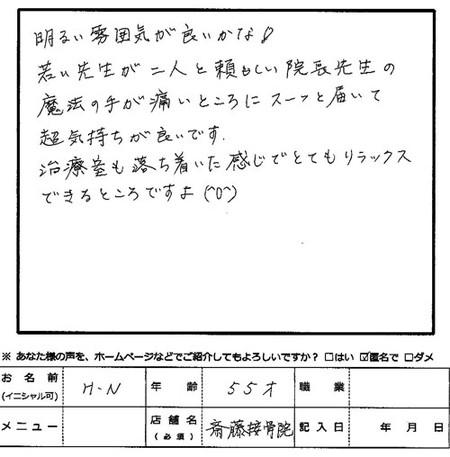 明るい雰囲気が良いかな!
若い先生が二人と頼もしい院長先生の
魔法の手が痛いところにスーッと届いて
超気持ちが良いです.
治療室も落ち着いた感じでとてもリラックス
できるところですよ(^0^)
※ あなた様の声を、ホームページなどでご紹介してもよろしいですか? □はい ☑匿名で □ダメ
お名前 (イニシャル可) H-N 年齢 55才 職業
メニュー 店舗名 (必須) 斎藤接骨院 記入日 年 月 日